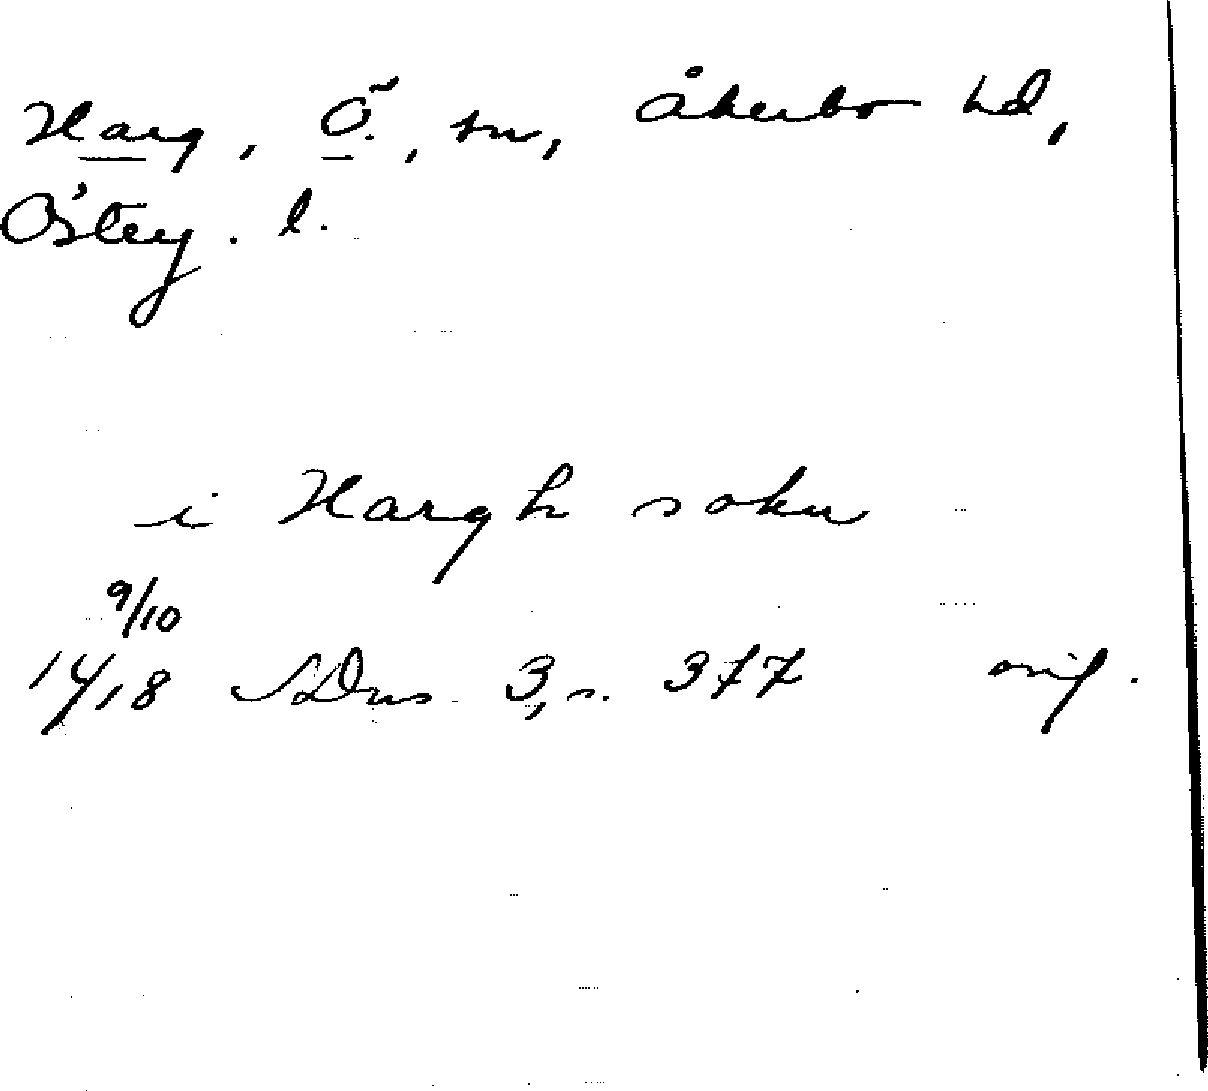 Harg, Ö., sn, Åkerbo hd,
Österg. l.
i Hargh sokn
9/10
1418 SDns 3, s. 377 orig.